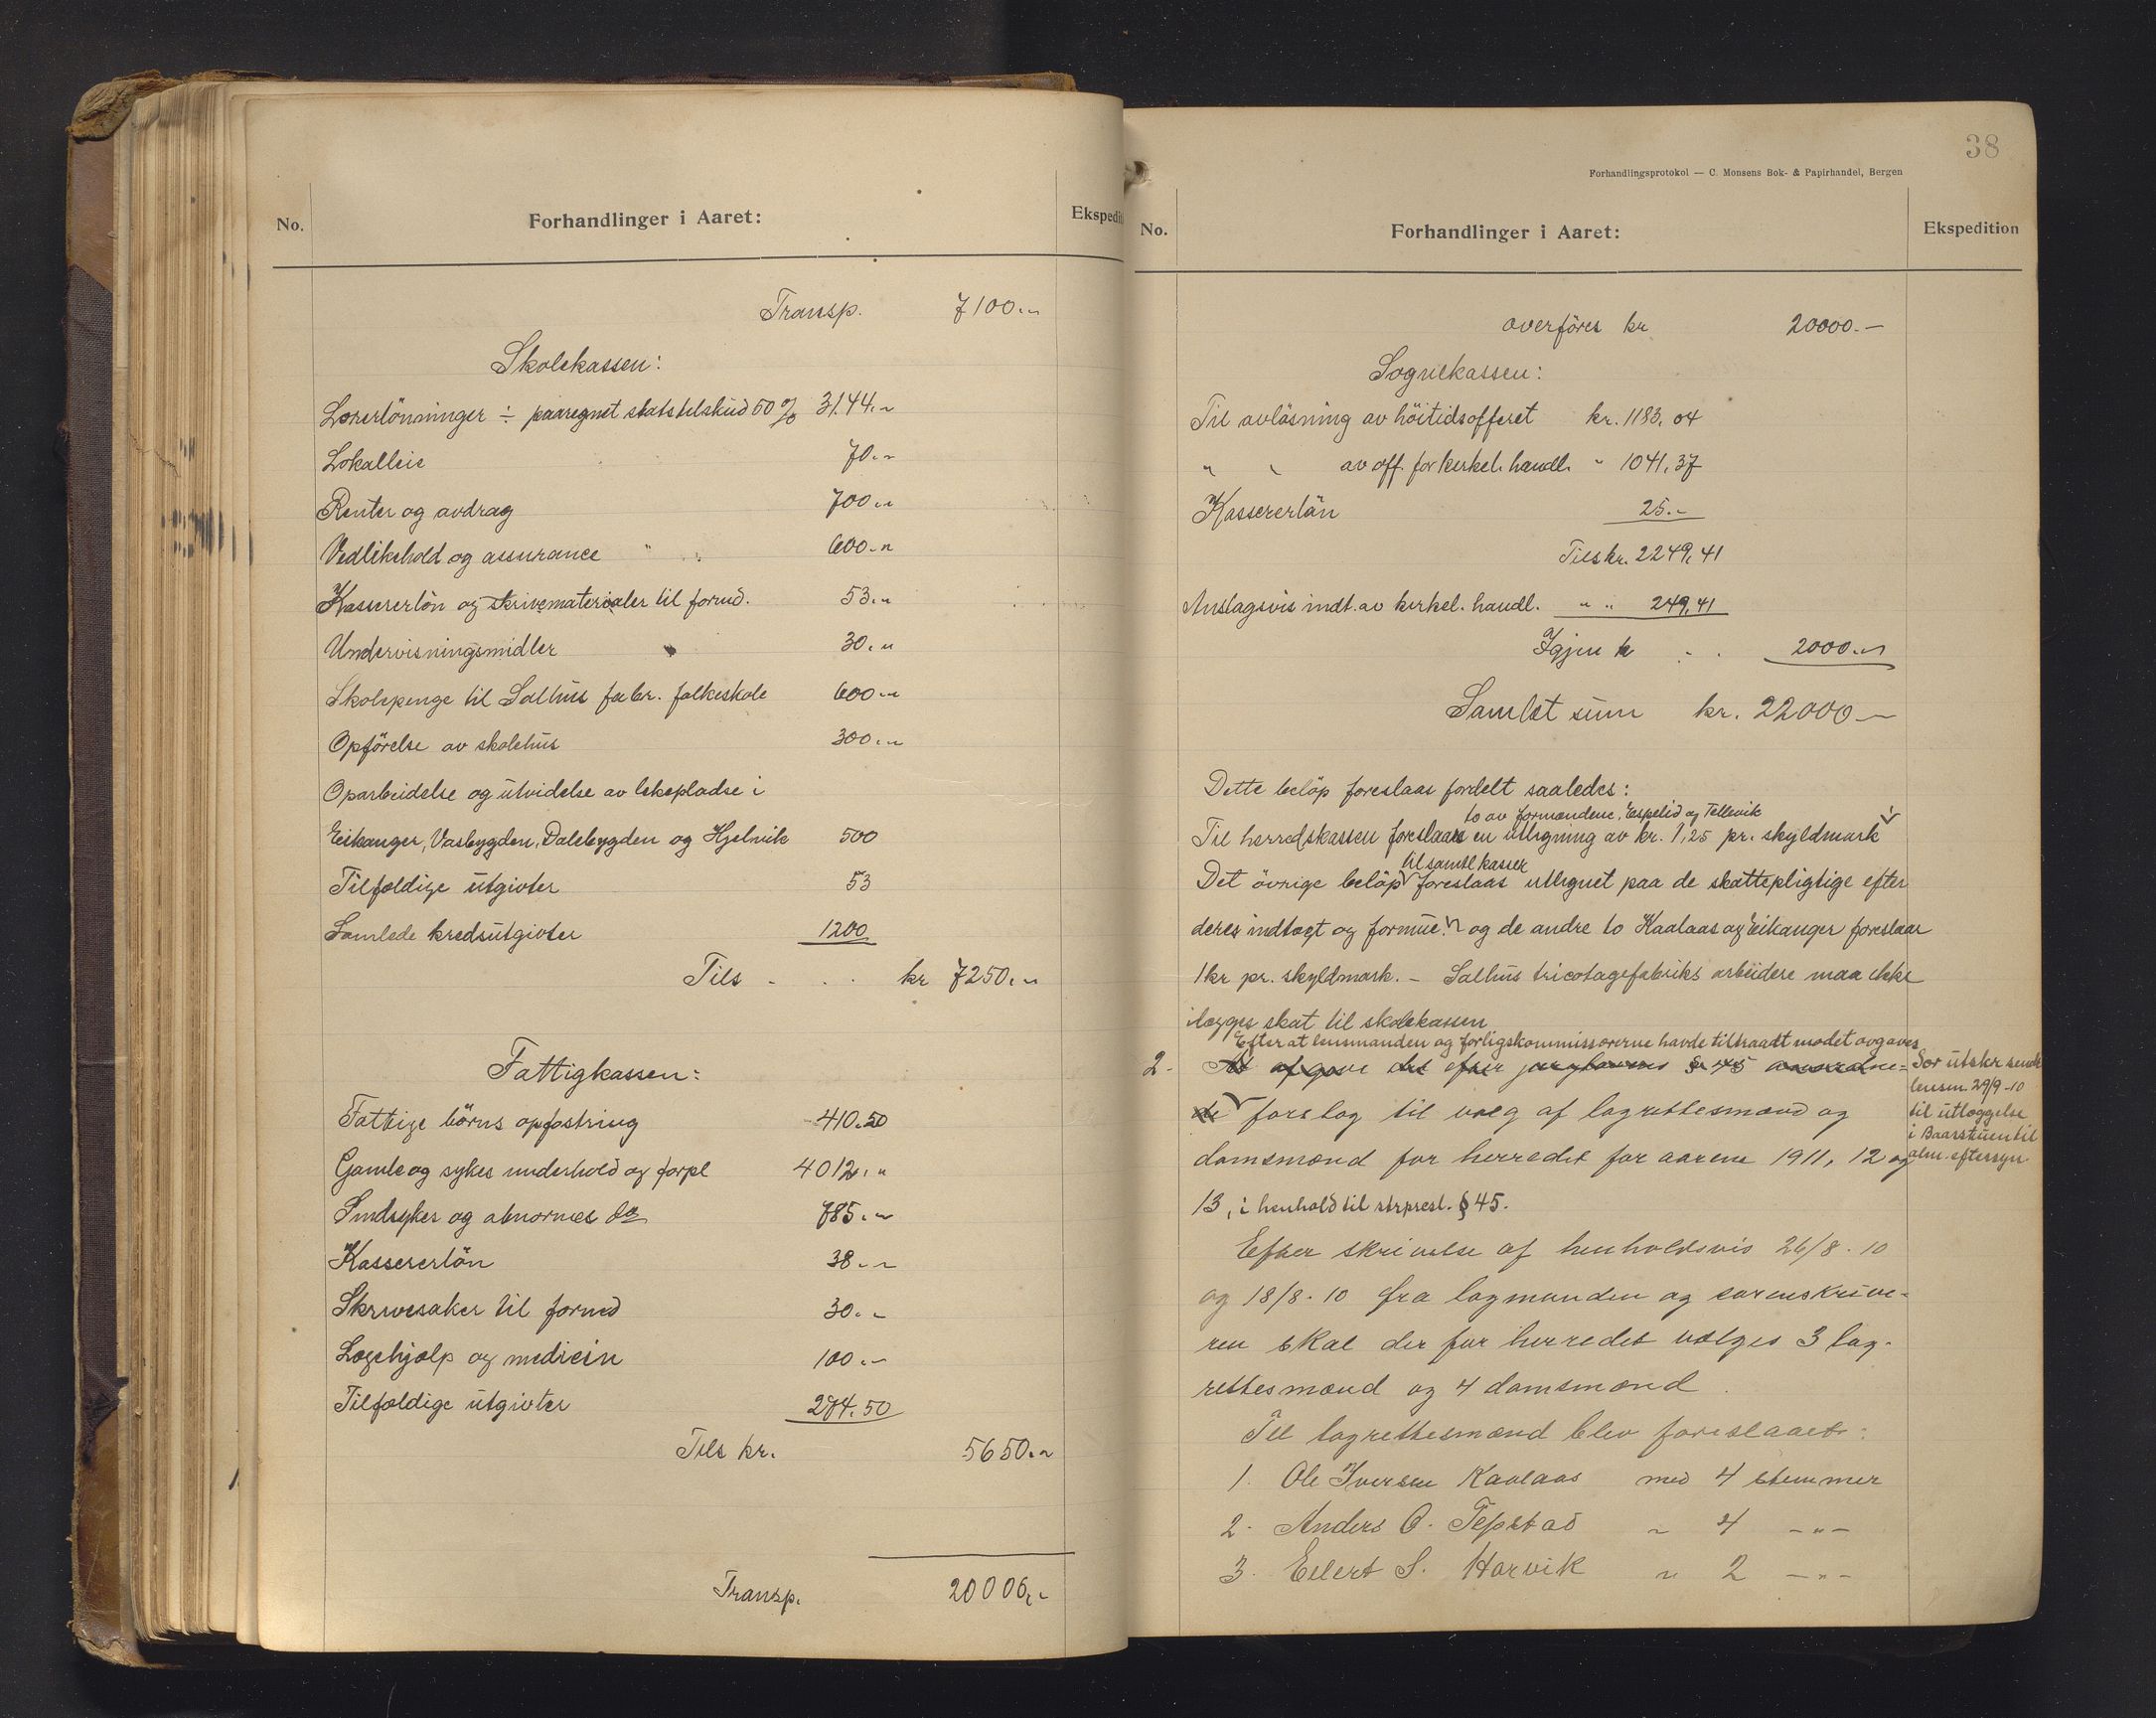 No.
Forhandlinger i Aaret:
Ekspedit
Transp. 7100.„
Skolekassen:
Lærerlönninger ÷ paaregnet statstilskud 50 % 3144.„
Lokalleie 70.„
Renter og avdrag 700.„
Vedlikehold og assurance " „ 600.„
Kassererlön og skrivematerialer til forud. 53.„
Undervisningsmidler " 30.„
Skolepenge til Salhus fabr. folkeskole 600.„
Opförelse av skolehus 300.„
Oparbeidelse og utvidelse av lekepladse i
Eikanger, Vasbygden, Dalebygden og Hjelvik 500
Tilfældige utgivter 53
Samlede kredsutgivter 1200
Tils . . . kr 7250.„
Fattigkassen:
Fattige börns opfostring 410.50
Gamle og sykes underhold og forpl 4012.„
Sindsykes og abnormes do 785.„
Kassererlön 38.„
Skrivesaker til formd 30.„
Lægehjælp og medicin 100.„
Tilfældige utgivter 274.50
Tils kr. 5650.„
Transp. 20000.„
38
Forhandlingsprotokol — C. Monsens Bok- & Papirhandel, Bergen
No.
Forhandlinger i Aaret:
Ekspedition
overföres kr 20000.—
Sognekassen:
Til avlösning av höitidsofferet kr. 1183,04
„ „ av off. for kirkel. handl. „ 1041,37
Kassererlön 25.–
Tils kr. 2249,41
Anslagsvis indt. av kirkel. handl. „ „ 249,41
Igjen kr . . 2000.„
Samlet sum kr. 22000—
Dette belöp foreslaaes fordelt saaledes:
to av formændene, Espelid og Tellevik
Til herredskassen foreslaar en utligning av kr. 1,25 pr. skyldmark
til samtl kasser
Det övrige belöp foreslaas utlignet paa de skattepligtige efter
deres indtægt og formue. og de andre to Kaalaas og Eikanger foreslaar
1 kr pr. skyldmark. – Salhus tricotagefabriks arbeidere maa ikke
ilægges skat til skolekassen
Efter at lensmanden og forligskommissærerne havde tiltraadt mödet avgaves
2. At afgove det efter jurylovens § 45 anordne-
de forslag til valg af lagrettesmænd og
domsmænd for herredet for aarene 1911, 12 og
13, i henhold til strprosl. § 45.
Sær utskr sendt
lensm. 29/9-10
til utlæggelse
i Baarstuen til
alm. eftersyn
Efter skrivelse af henholdsvis 26/8.10
og 18/8.10 fra lagmanden og sorenskrive-
ren skal der for herredet vælges 3 lag-
rettesmænd og 4 domsmænd.
Til lagrettesmænd blev foreslaaet:
1. Ole Iversen Kaalaas med 4 stemmer
2. Anders O. Tepstad „ 4 –„–
3. Eilert S. Horvik „ 2 –„–